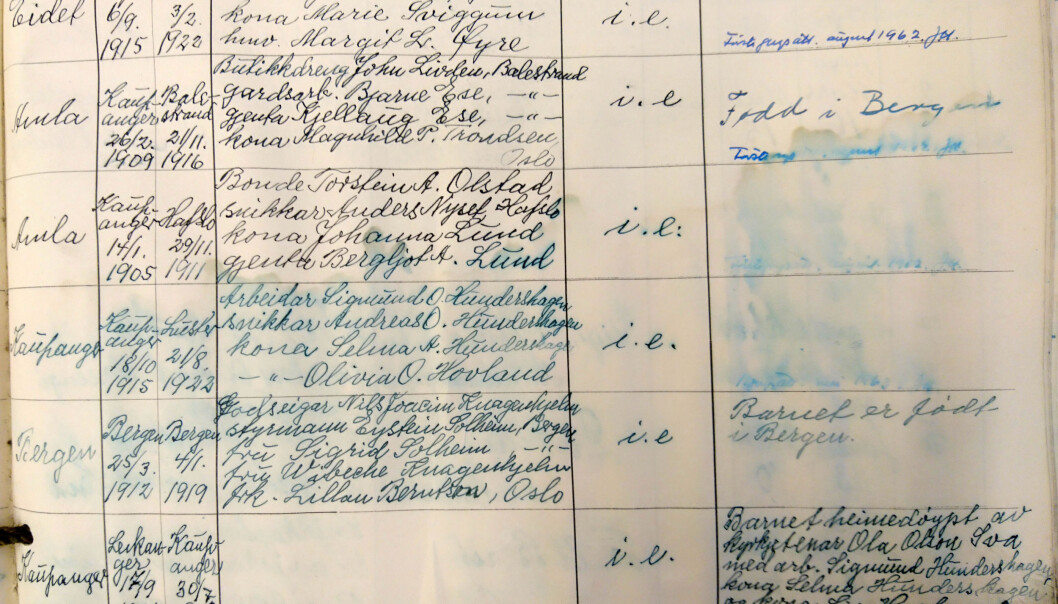 Eidet 6/9. 3/2. kona Marie Sviggum i.e.
1915 1922 hmv. Margit L. Øyre august 1962.
Butikkdreng John Livden, Balestrand
Amla Kaup- Bale- gardsarb. Bjarne Ese, -"- i.e Fødd i Bergen
anger strand gjenta Kjellaug Ese, -"-
26/2. 21/11. kona Magnhild P. Trondsen,
1909 1916 Oslo
Bonde Torstein A. Olstad
Kaup- Hafslo snikkar Anders Nyset, Hafslo
Amla anger 29/11. kona Johanna Lund i.e.:
14/1. gjenta Bergljot A. Lund
1905 1911
Arbeidar Sigmund O. Hundershagen
Kaup- Luster snikkar Andreas O. Hundershagen
Kaupanger anger 21/8. kona Selma A. Hundershagen i.e.
18/10
1915 1922 -"- Olivia O. Hovland
Godseigar Nils Joacim Knagenhjelm Barnet er født
Bergen Bergen styrmann Eystein Solheim, Bergen i.e i Bergen.
Bergen 25/3. 4/1. fru Sigrid Solheim, -"-
fru Wibeche Knagenhjelm
1912 1919 frk. Lillan Berntsen, Oslo
Barnet heimedøypt av
Leikan- Kaup- kyrkjetenar Ola Olson Sva
ger, anger i.e. med arb. Sigmund Hundershagen,
Kaupanger 17/9 30/7 kona Selma Hundershagen